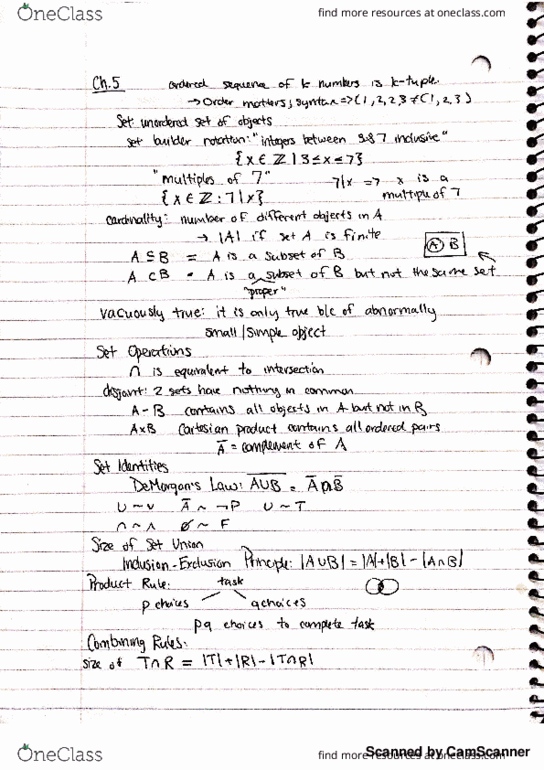 OneClass
find more resources at oneclass.com
Ch.5 ordered sequence of k numbers is k-tuple.
→ Order matters; syntax => (1,2,2,3 ≠ (1,2,3)
Set unordered set of objects
set builder notation: "integers between 3&7 inclusive"
{x ∈ ℤ | 3 ≤ x ≤ 7}
"multiples of 7" 7|x => x is a
{x ∈ ℤ : 7|x} multiple of 7
cardinality: number of different objects in A
→ |A| if set A is finite
A ⊆ B = A is a subset of B
A B
A ⊂ B = A is a subset of B but not the same set
"proper"
vacuously true: it is only true b/c of abnormally
small/simple object
Set Operations
∩ is equivalent to intersection
disjoint: 2 sets have nothing in common
A - B contains all objects in A but not in B
A×B Cartesian product contains all ordered pairs
A̅ = complement of A
Set Identities
DeMorgan's Law: A̅U̅B̅ = A̅∩B̅
∪ ~ ∨ A̅ ~ ¬P U ~ T
∩ ~ ∧ ∅ ~ F
Size of Set Union
Inclusion-Exclusion Principle: |A∪B| = |A|+|B| - |A∩B|
Product Rule: task
p choices q choices
pq choices to complete task
Combining Rules:
size of T∩R = |T|+|R|-|T∩R|
OneClass
find more resources at oneclass.com
Scanned by CamScanner